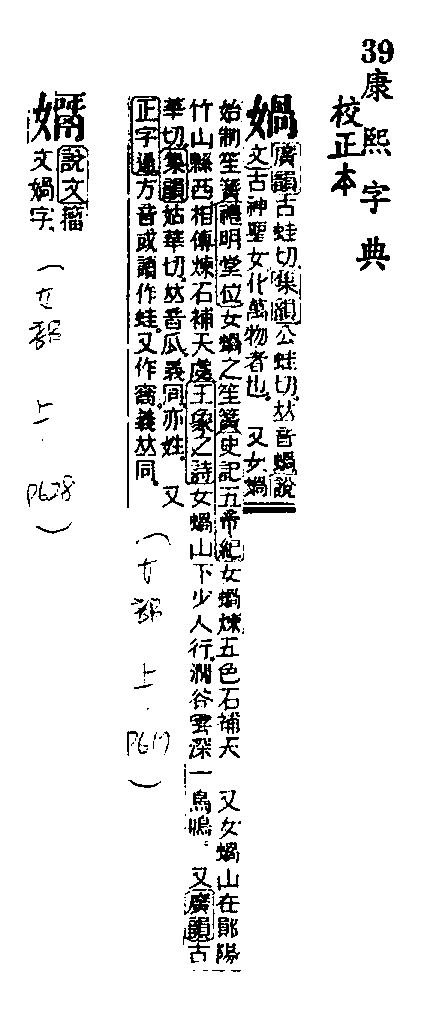 39
康熙字典
校正本
媧
廣韻古蛙切集韻公蛙切𠀤音蝸說
文古神聖女化萬物者也。又女媧
始制笙簧禮明堂位女媧之笙簧史記五帝紀女媧煉五色石補天 又女媧山在鄖陽
竹山縣西相傳煉石補天處王象之詩女媧山下少人行澗谷雲深一鳥鳴。又廣韻古
華切集韻姑華切𠀤音瓜義同亦姓。又
正字通方音或讀作蛙。又作窩義𠀤同。
(女部 上. P617)
說文籀
文媧字
(女部 上. P628)